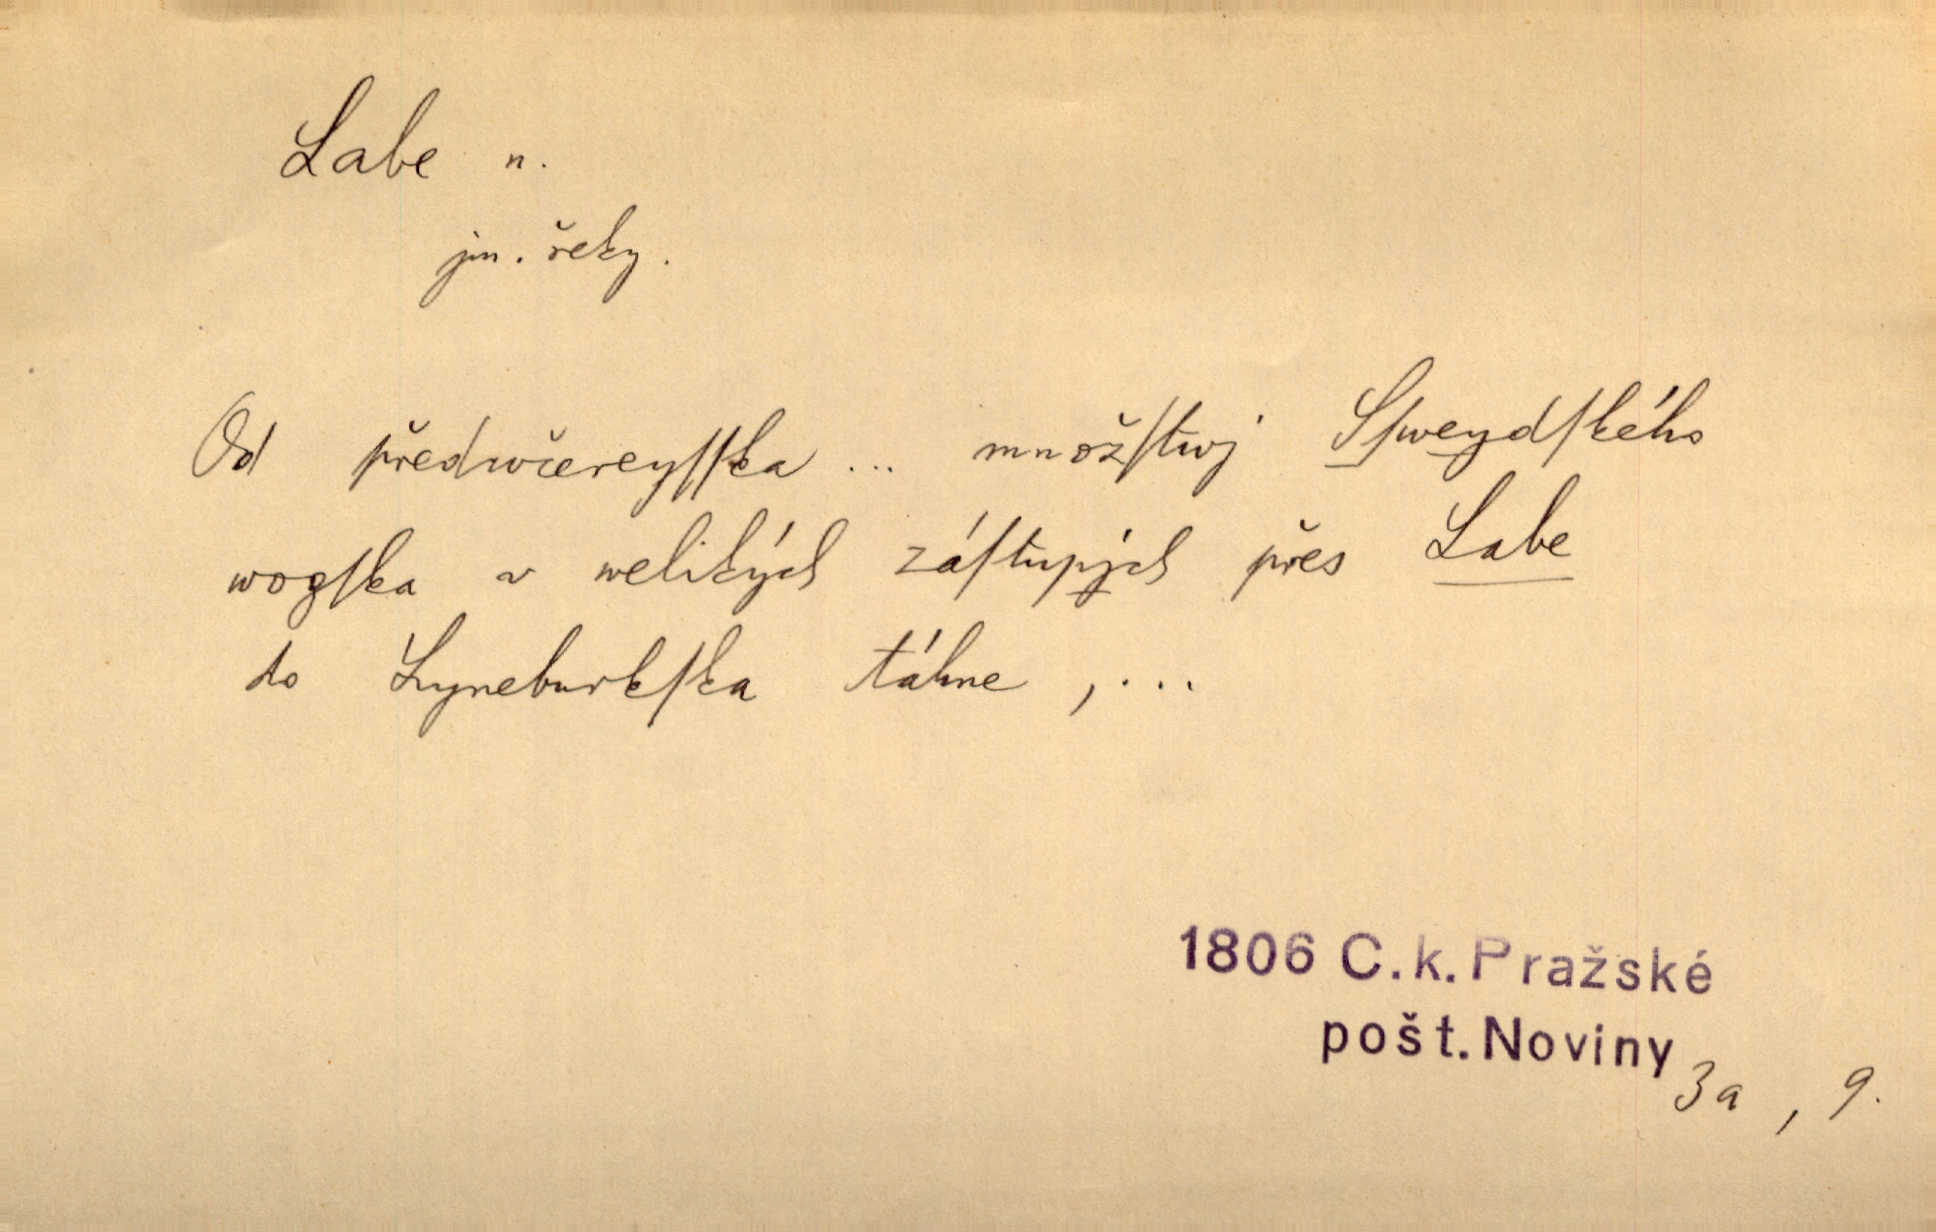 Labe n.
jm. řeky.
Od předwčereyſſka ... množſtwj Sſweydſkého
wogſka v welikých záſtupjch přes Labe
do Lyneburkſka táhne, ...
1806 C.k. Pražské
pošt. Noviny
3a, 9.